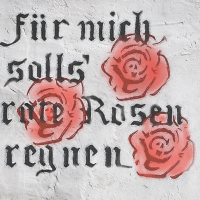 für mich
solls'
rote Rosen
regnen